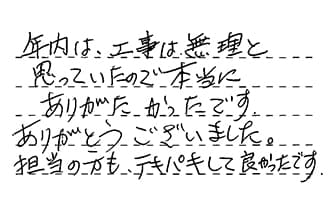 年内は、工事は無理と
思っていたので本当に
ありがたかったです.
ありがとうございました。
担当の方も、テキパキして良かったです.